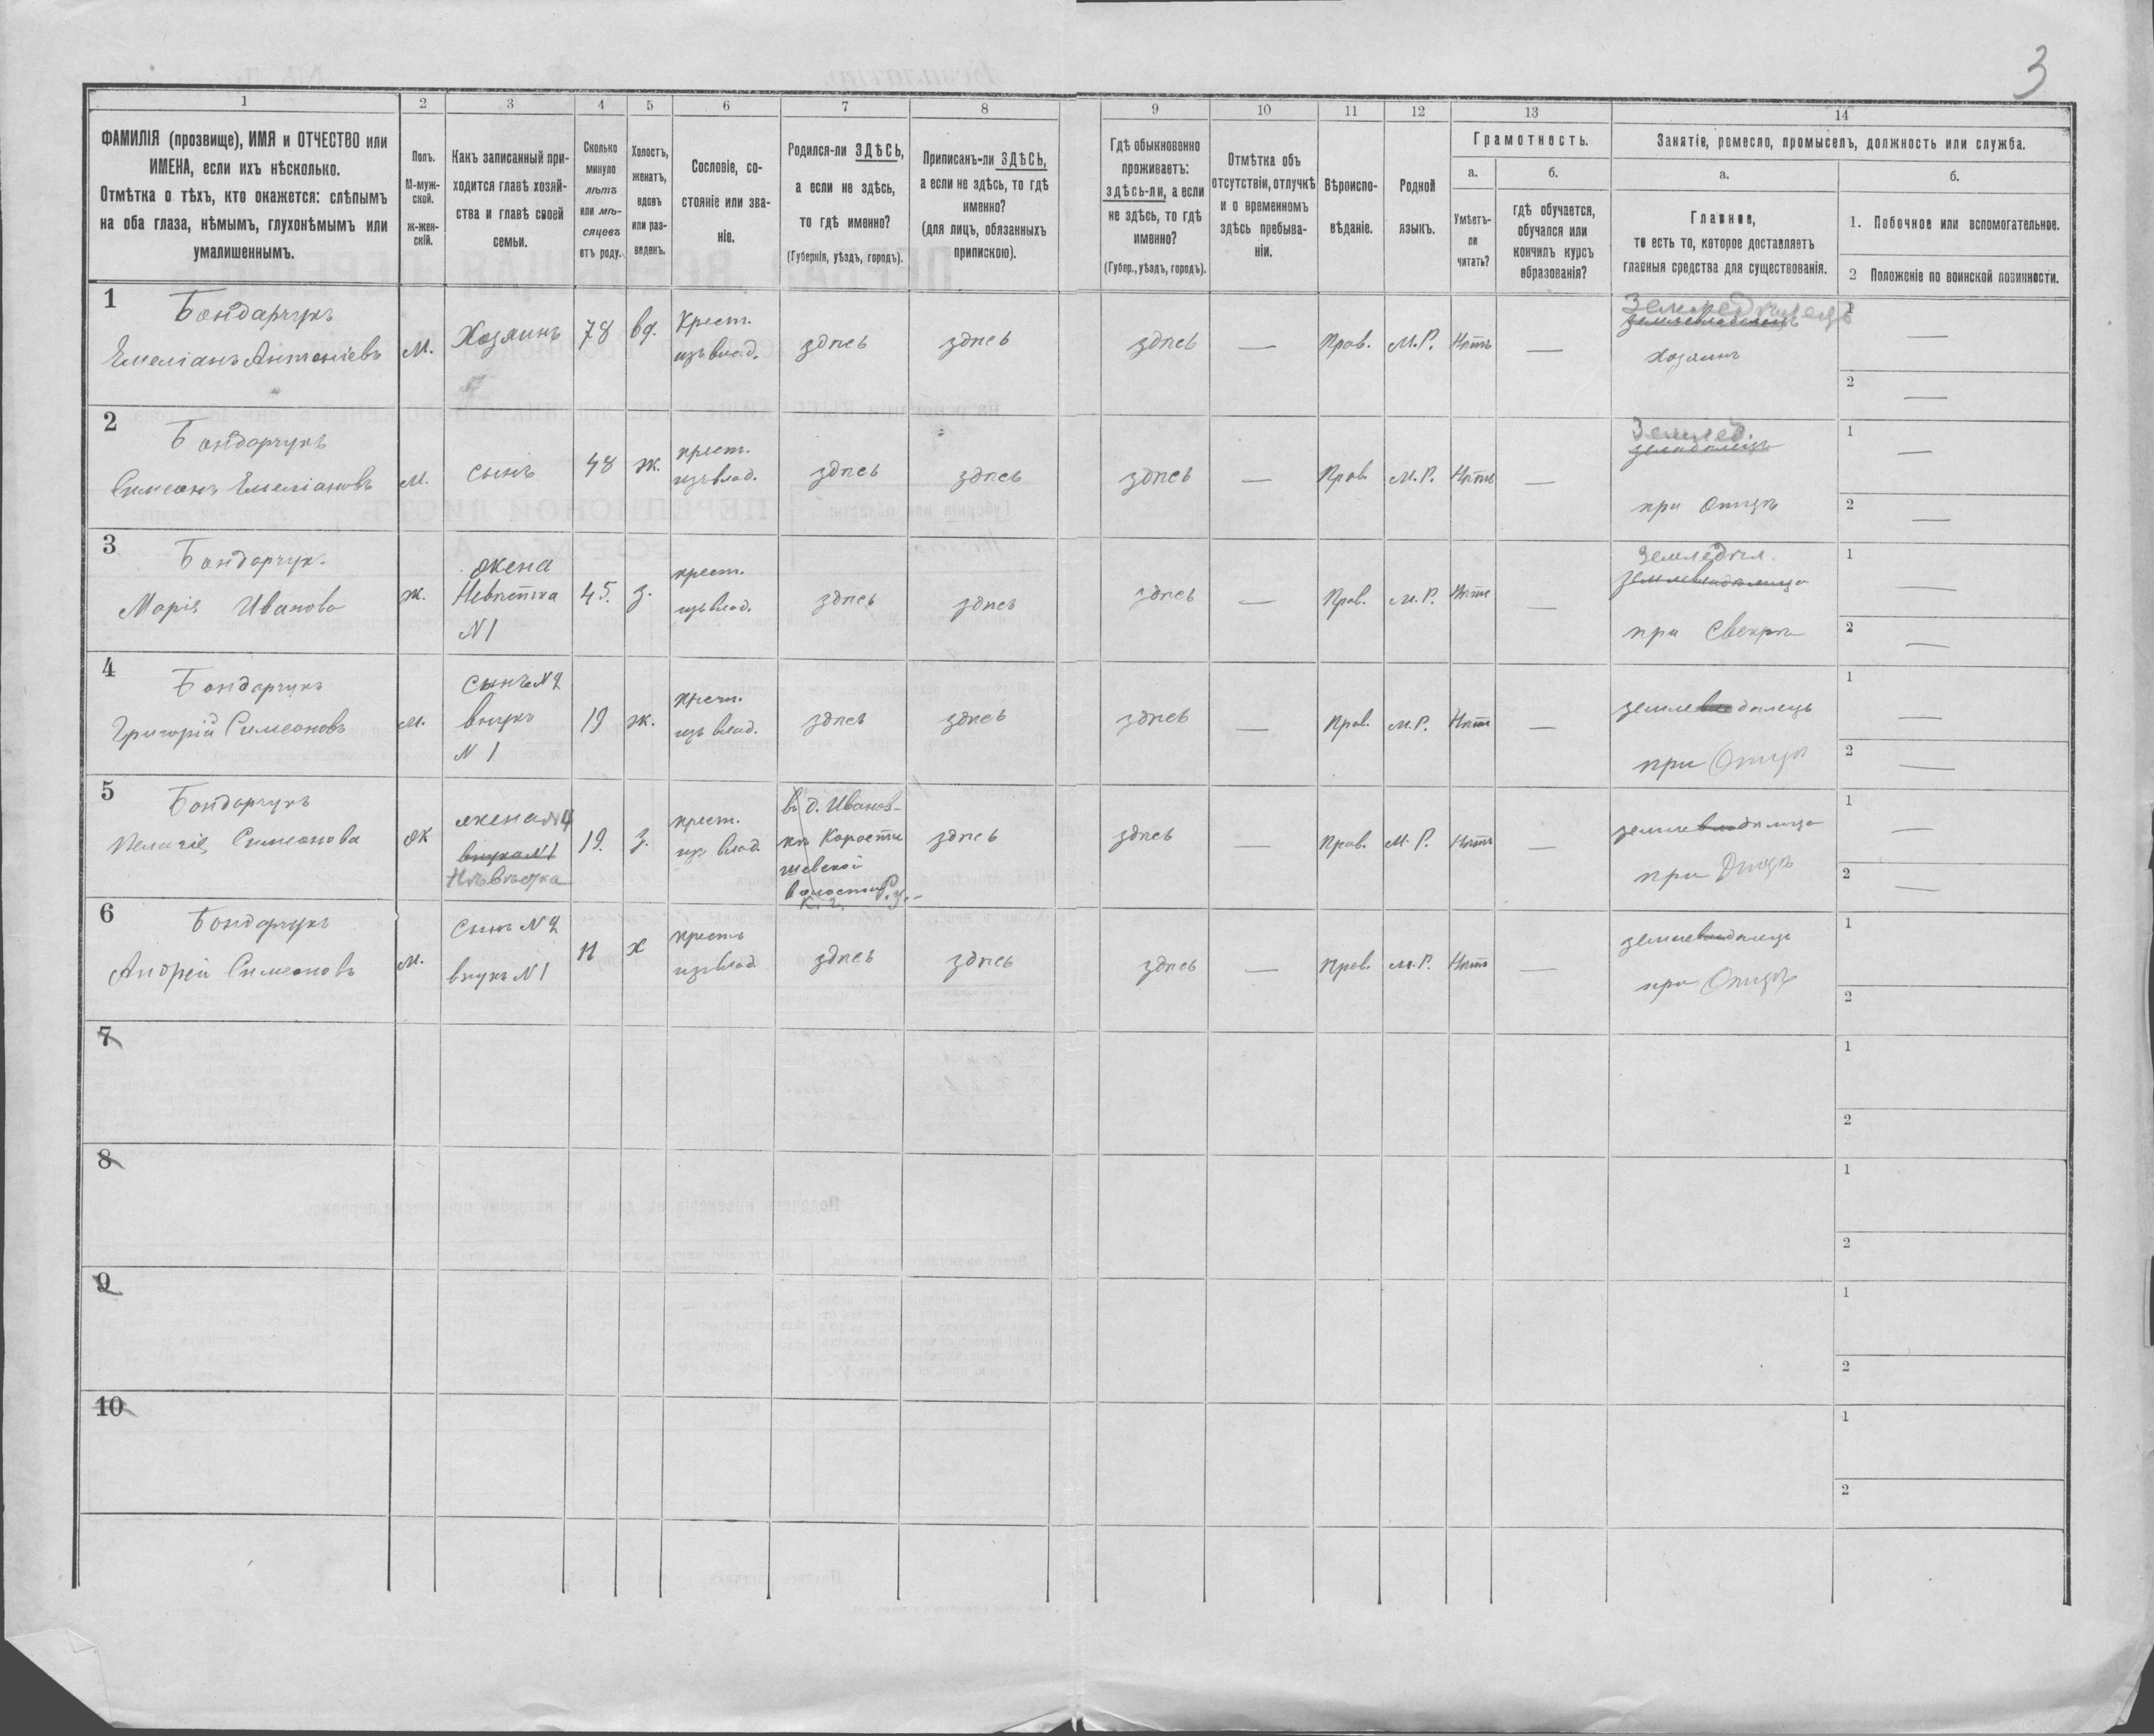 3
1
ФАМИЛІЯ (прозвище), ИМЯ и ОТЧЕСТВО или
ИМЕНА, если ихъ нѣсколько.
Отмѣтка о тѣхъ, кто окажется: слѣпымъ
на оба глаза, нѣмымъ, глухонѣмымъ или
умалишеннымъ.
2
Полъ.
М-муж-
ской.
ж-жен-
скій.
3
Какъ записанный при-
ходится главѣ хозяй-
ства и главѣ своей
семьи.
4
Сколько
минуло
лѣтъ
или мѣ-
сяцевъ
отъ роду.
5
Холостъ,
женатъ,
вдовъ
или раз-
веденъ.
6
Сословіе, со-
стояніе или зва-
ніе.
7
Родился-ли ЗДѢСЬ,
а если не здѣсь,
то гдѣ именно?
(Губернія, уѣздъ, городъ).
8
Приписанъ-ли ЗДѢСЬ,
а если не здѣсь, то гдѣ
именно?
(для лицъ, обязанныхъ
припискою).
9
Гдѣ обыкновенно
проживаетъ:
здѣсь-ли, а если
не здѣсь, то гдѣ
именно?
(Губер., уѣздъ, городъ).
10
Отмѣтка объ
отсутствіи, отлучкѣ
и о временномъ
здѣсь пребыва-
ніи.
11
Вѣроиспо-
вѣданіе.
12
Родной
языкъ.
13
Грамотность.
а.
Умѣетъ-
ли
читать?
б.
гдѣ обучается,
обучался или
кончилъ курсъ
образованія?
14
Занятіе, ремесло, промыселъ, должность или служба.
а.
Главное,
то есть то, которое доставляетъ
главныя средства для существованія.
б.
1. Побочное или вспомогательное.
2 Положеніе по воинской повинности.
1
Бондарчукъ
Емеліанъ Антоніевъ
М.
Хозяинъ
78
вд.
Крест.
изъ влад.
здѣсь
здѣсь
здѣсь
—
Прав.
М.Р.
Нѣтъ
—
Земледѣлецъ
землевладѣлецъ
хозяинъ
1 —
2 —
2
Бондарчукъ
Симеонъ Емеліановъ
М.
сынъ
48
ж.
крест.
изъ влад.
здѣсь
здѣсь
здѣсь
—
Прав.
М.Р.
Нѣтъ
—
Землед.
при Отцѣ
1 —
2 —
3
Бондарчук.
Марія Иванова
ж.
жена
Невѣстка
N 1
45.
з.
крест.
изъ влад.
здѣсь
здѣсь
здѣсь
—
Прав.
М.Р.
Нѣтъ
—
Земледѣл.
землевладѣлица
при Свекрѣ
1 —
2 —
4
Бондарчукъ
Григорій Симеоновъ
М.
Сынъ N 2
внукъ
N 1
19
ж.
крест.
изъ влад.
здѣсь
здѣсь
здѣсь
—
Прав.
М.Р.
Нѣтъ
—
землевладѣлецъ
при Отцѣ
1 —
2 —
5
Бондарчукъ
Симонова
ж
жена N 4
внука N 1
Невѣстка
19.
з.
крест.
из влад.
въ д. Иванов-
кѣ Корости
шевской
волости Р. у.
К. г.
здѣсь
здѣсь
—
Прав.
М.Р.
Нѣтъ
—
землевладѣлица
при
1 —
2 —
6
Бондарчукъ
Андрей Симеоновъ
М.
Сынъ N 2
внукъ N 1
11
х
крестъ
изъ влад
здѣсь
здѣсь
здѣсь
—
Прав.
М.Р.
Нѣтъ
—
землевладѣлецъ
при Отцѣ
1
2
7
1
2
8
1
2
9
1
2
10
1
2